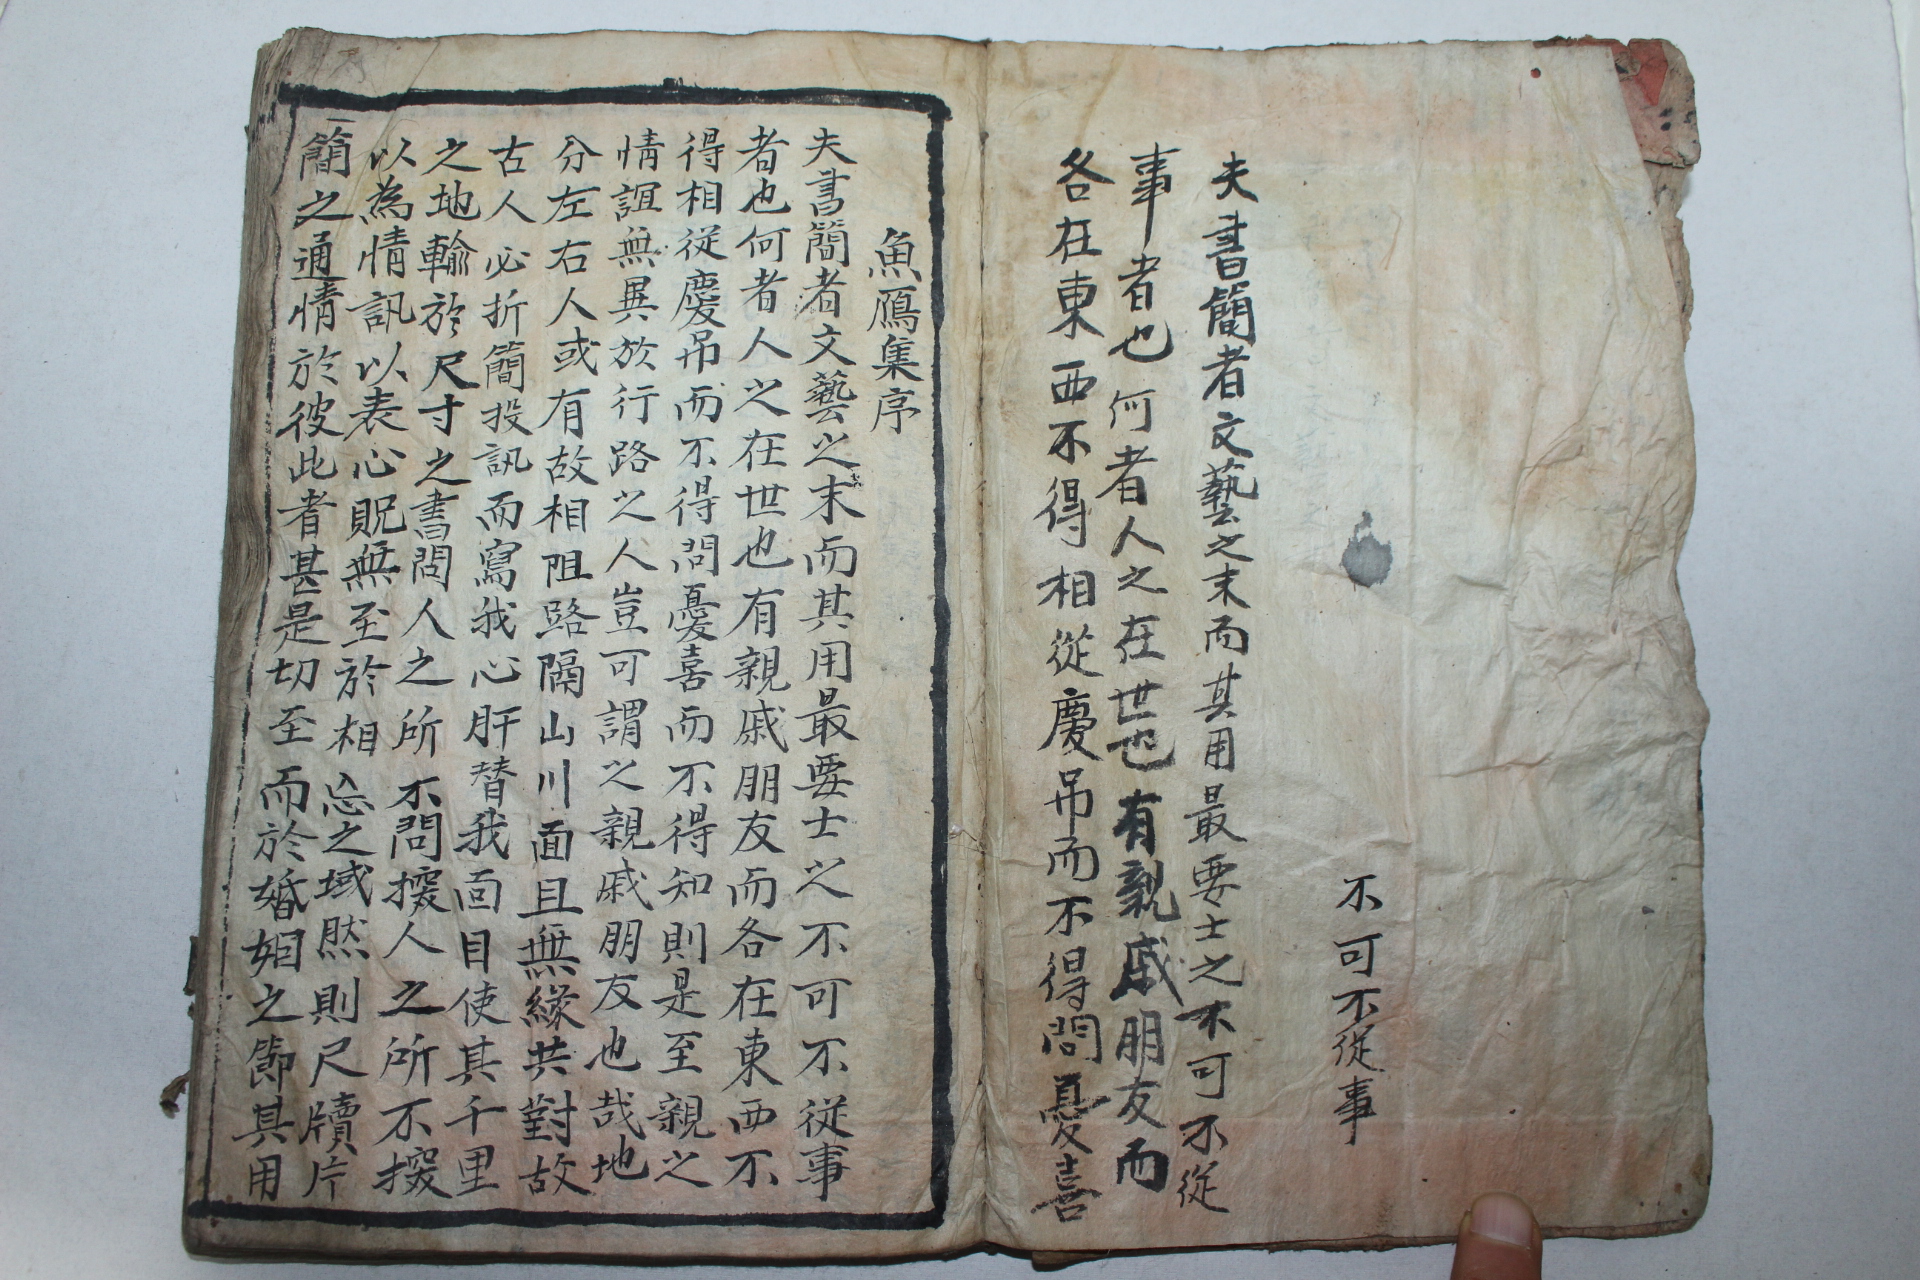 不可不從事
夫書簡者文藝之末而其用最要士之不可不從
事者也何者人之在世也有親戚朋友而
各在東西不得相從慶吊而不得問憂喜
魚鴈集序
夫書簡者文藝之末而其用最要士之不可不從事
者也何者人之在世也有親戚朋友而各在東西不
得相從慶吊而不得問憂喜而不得知則是至親之
情誼無異於行路之人豈可謂之親戚朋友也哉地
分左右人或有故相阻路隔山川面且無緣共對故
古人必折簡投訊而寫我心肝替我面目使其千里
之地輸於尺寸之書問人之所不問擾人之所不擾
以為情訊以表心貺無至於相忘之域然則尺牘片
簡之通情於彼此者甚是切至而於婚姻之節其用